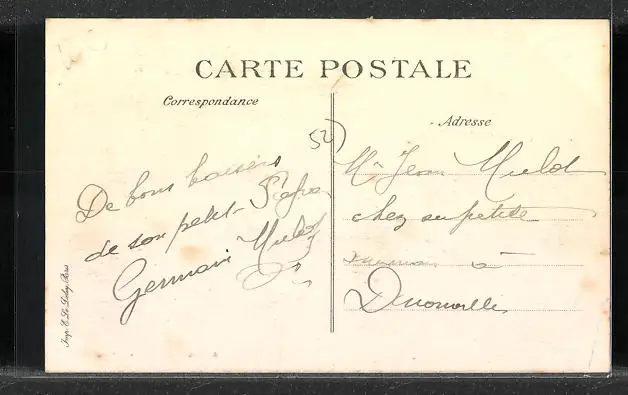 CARTE POSTALE
Correspondance
Adresse
52)
De bons baisers
de son petit
Germain Mulot
Mr Jean Mulot
chez sa petite
à
Denonville
Imp. E. Le Deley, Paris